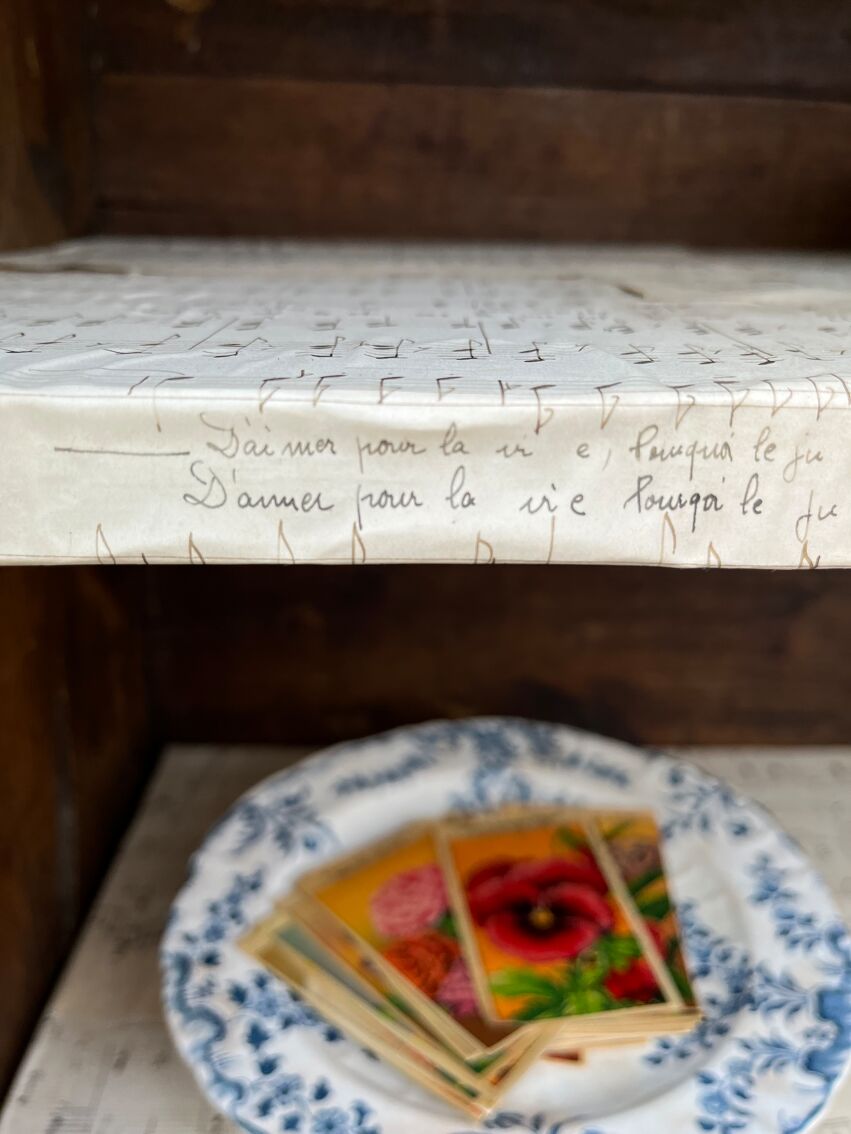 D'aimer pour la vi e, Pourquoi le ju
D'aimer pour la vie Pourqoi le ju